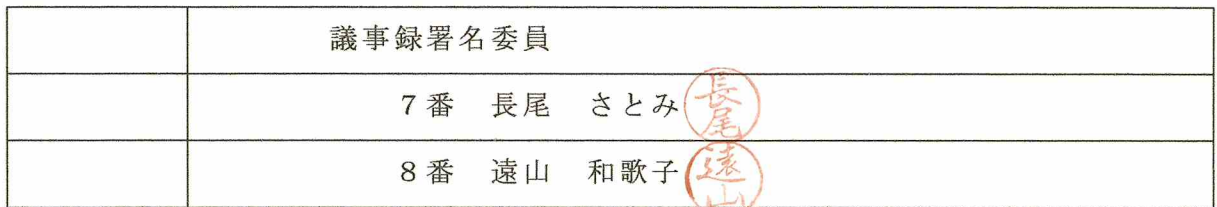 議事録署名委員
7番 長尾 さとみ 長尾
8番 遠山 和歌子 遠山